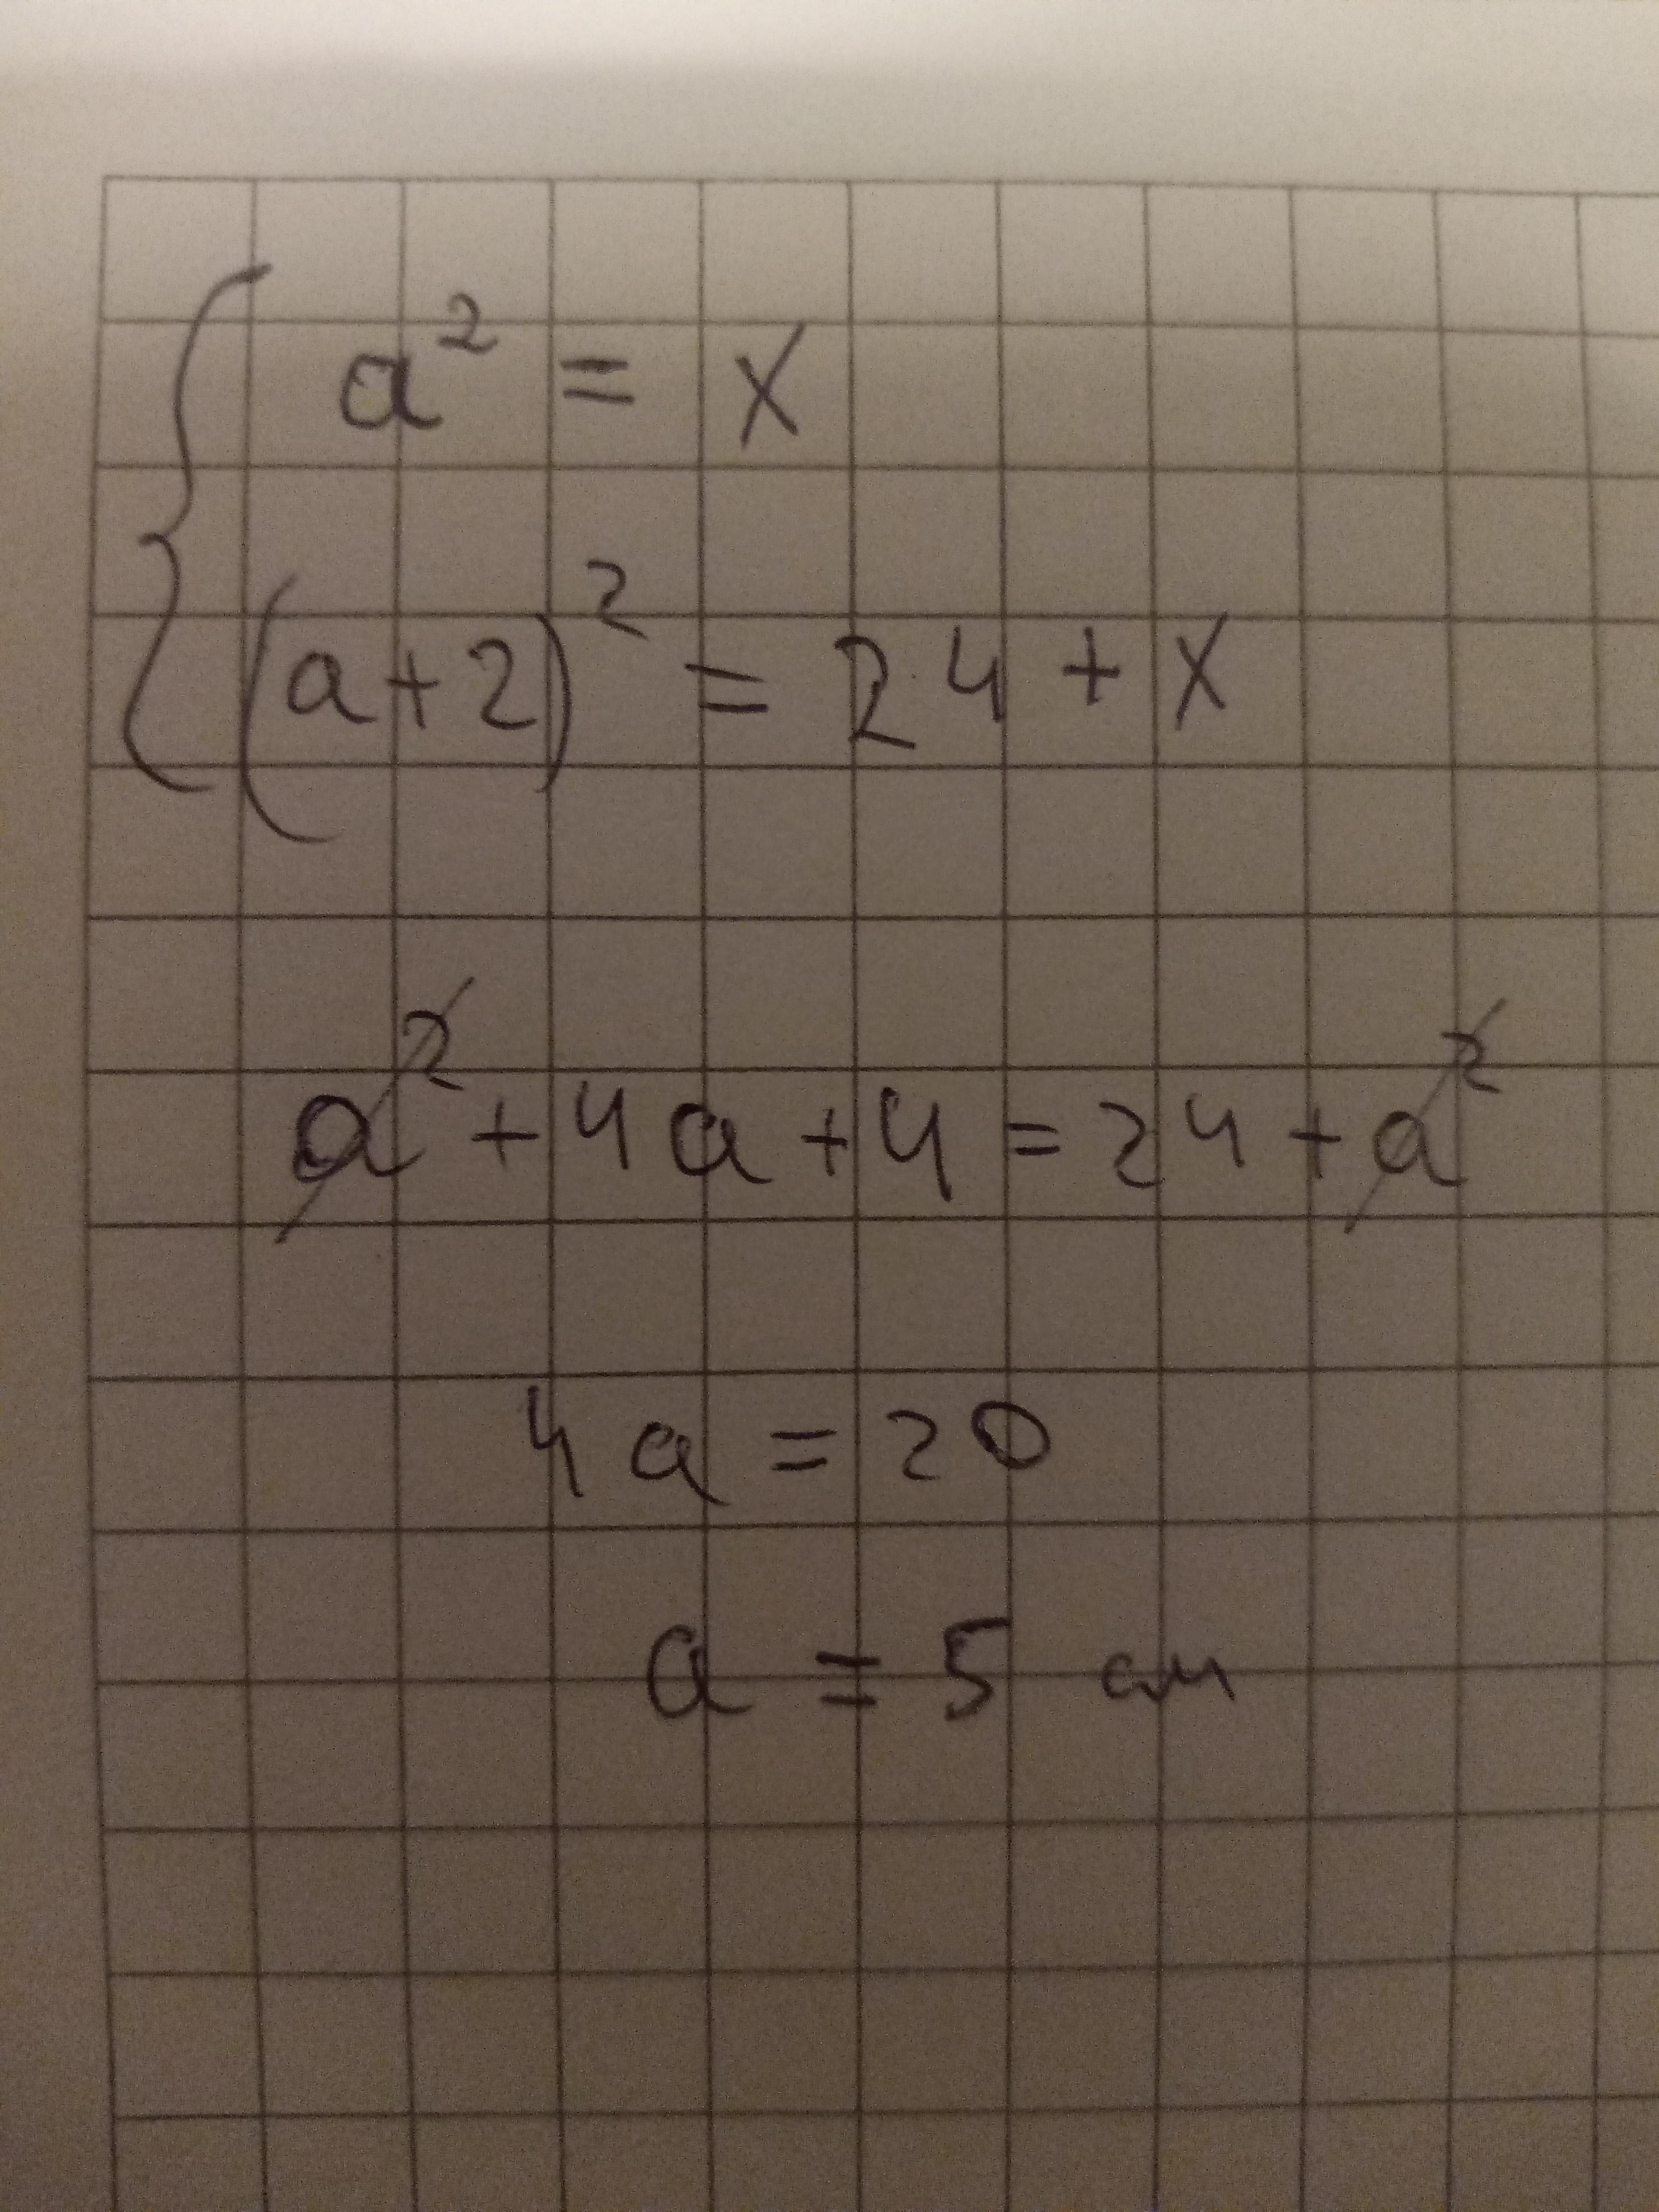 a² = x
(a+2)² = 24 + x
a² + 4a + 4 = 24 + a²
4a = 20
a = 5 см